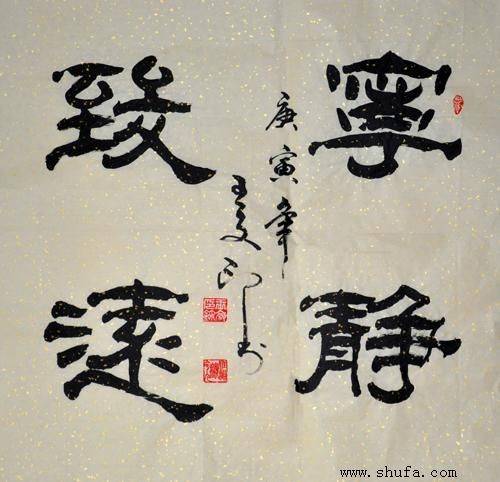 寧靜
致遠
庚寅年
王文印书
www.shufa.com